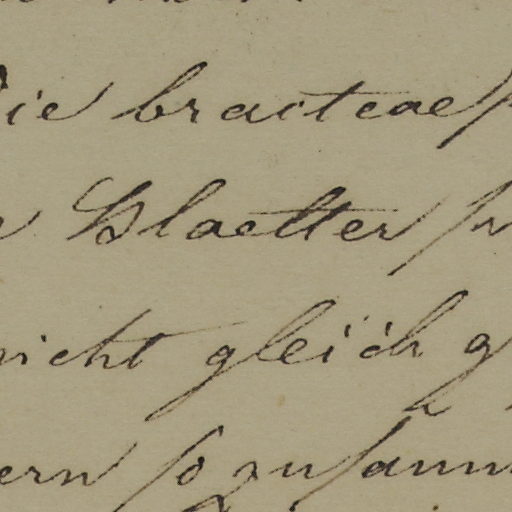 ie bracteae
Blaetter
nicht gleich g
ern so zusamm